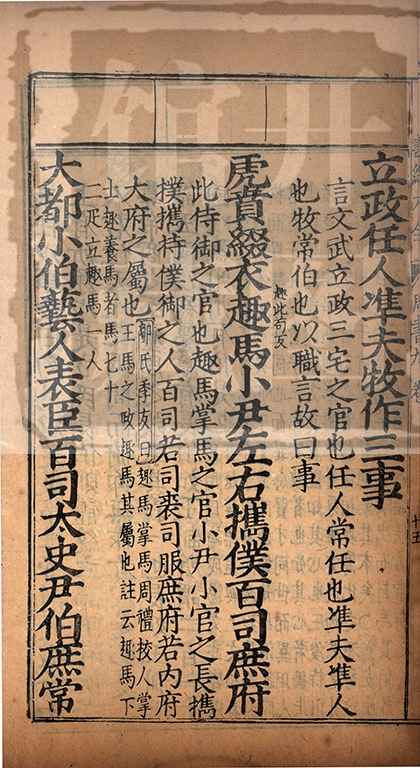 立政任人準夫牧作三事
言文武立政三宅之官也任人常任也準夫準人
也牧常伯也以職言故曰事
虎賁綴衣趣馬小尹左右攜僕百司庶府
趣此苟反
此侍御之官也趣馬掌馬之官小尹小官之長攜
僕攜持僕御之人百司若司裘司服庶府若內府
大府之屬也
鄒氏季友曰趣馬掌馬周禮校人掌
王馬之政趣馬其屬也註云趣馬下
士趣養馬者馬七十
二疋立趣馬一人
大都小伯藝人表臣百司太史尹伯庶常